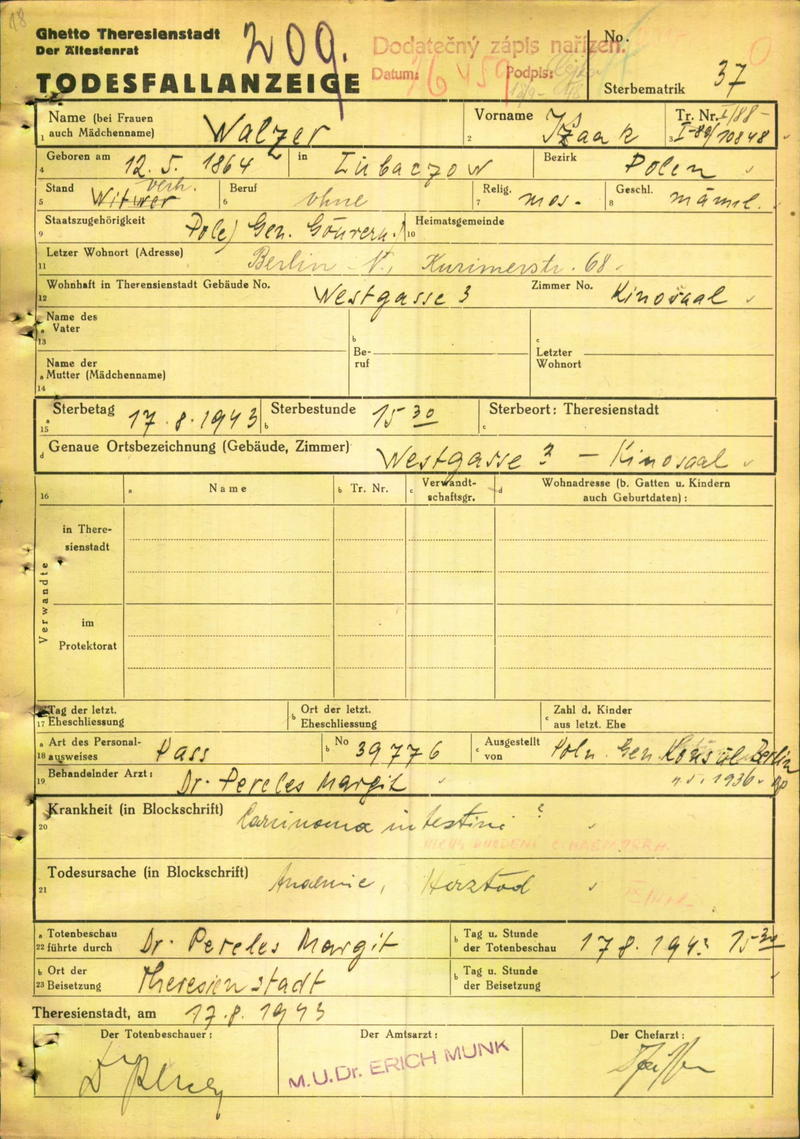 18
Ghetto Theresienstadt
Der Ältestenrat
TODESFALLANZEIGE
209.
Dodatečný zápis nařízen.
Datum:
Podpis:
No.
Sterbematrik 37
Name (bei Frauen auch Mädchenname) Walzer
1
Vorname Izaak
2
Tr. Nr. I/88-
3 I-89/10848
Geboren am 12. 5. 1864 in Lubaczow Bezirk Polen
4
Stand Witwer verh. Beruf ohne Relig. mos. Geschl. männl.
5 6 7 8
Staatszugehörigkeit Pole/ Gen. Gouvern. Heimatsgemeinde
9 10
Letzer Wohnort (Adresse) Berlin N, Kurimerstr. 68
11
Wohnhaft in Theresienstadt Gebäude No. Westgasse 3 Zimmer No. Kinosaal
12
a Name des Vater b Beruf c Letzter Wohnort
13
a Name der Mutter (Mädchenname)
14
a Sterbetag 17. 8. 1943 b Sterbestunde 15 30 c Sterbeort: Theresienstadt
15
d Genaue Ortsbezeichnung (Gebäude, Zimmer) Westgasse 3 - Kinosaal
16 a Name b Tr. Nr. c Verwandtschaftsgr. d Wohnadresse (b. Gatten u. Kindern auch Geburtdaten) :
Verwandte
in Theresienstadt
im Protektorat
a Tag der letzt. Eheschliessung b Ort der letzt. Eheschliessung c Zahl d. Kinder aus letzt. Ehe
17
a Art des Personalausweises Pass b No 39776 c Ausgestellt von Poln. Gen. Konsul Berlin
18
1936
Behandelnder Arzt: Dr. Pereles Margit
19
Krankheit (in Blockschrift) Carcinoma intestini
20
Todesursache (in Blockschrift) Anaemie, Herztod
21
a Totenbeschau führte durch Dr. Pereles Margit b Tag u. Stunde der Totenbeschau 17 8. 1943 15 30
22
b Ort der Beisetzung Theresienstadt b Tag u. Stunde der Beisetzung
23
Theresienstadt, am 17. 8. 1943
Der Totenbeschauer: Der Amtsarzt: Der Chefarzt:
M.U.Dr. ERICH MUNK